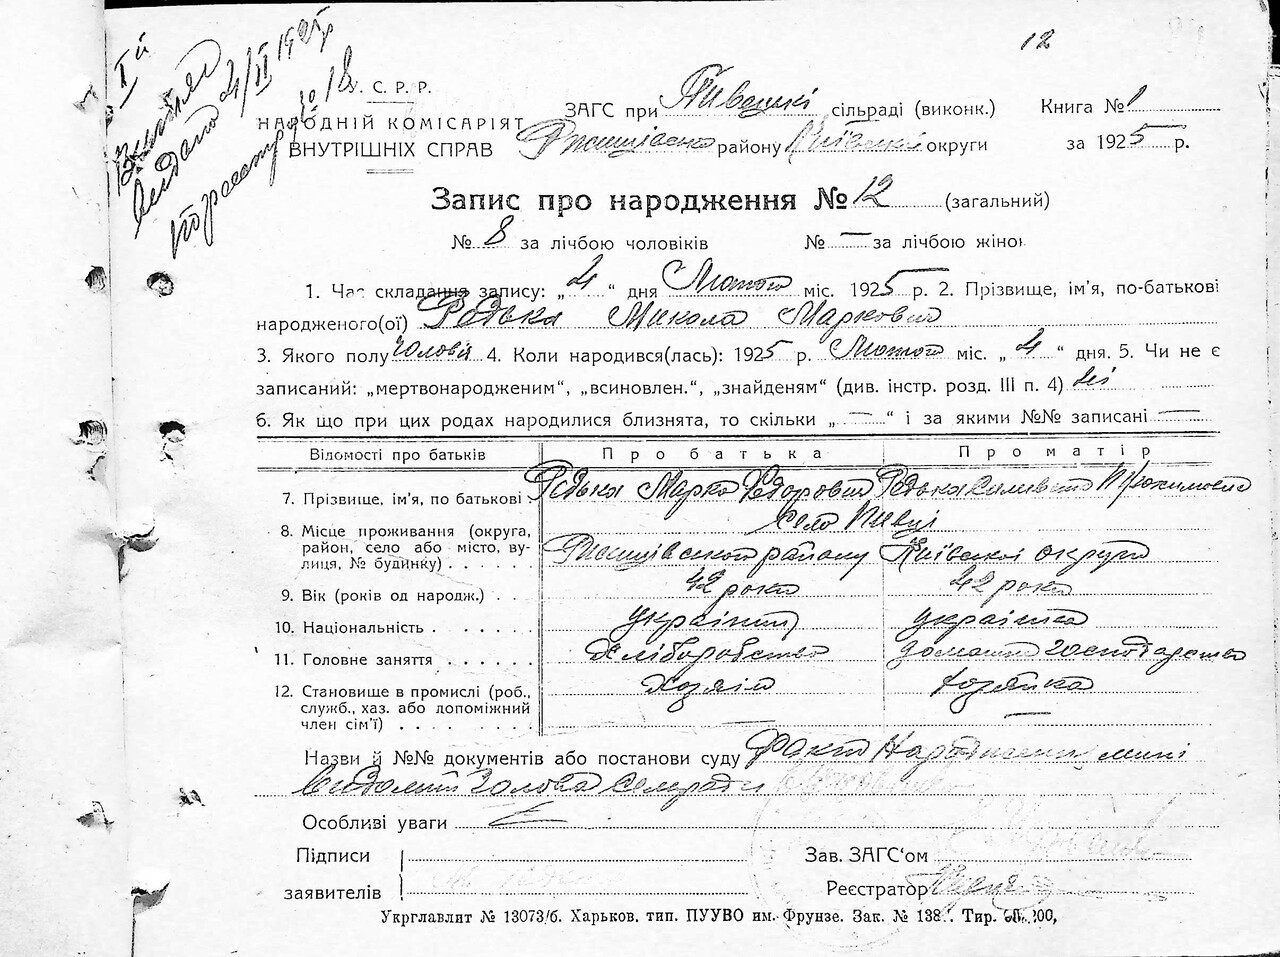 12
Iй
Витяг
видано 4/II 1925 р
по реестр. № 18
У. С. Р. Р.
НАРОДНІЙ КОМІСАРІЯТ
ВНУТРІШНІХ СПРАВ
ЗАГС при Пивецькі сільраді (виконк.) Книга № 1
Ржищівсько району Київської округи за 1925 р.
Запис про народження № 12 (загальний)
№ 8 за лічбою чоловіків № — за лічбою жінок
1. Час складання запису: „4“ дня Лютого міс. 1925 р. 2. Прізвище, ім’я, по-батькові
народженого(ої) Редька Микола Маркович
3. Якого полу Чоловіч 4. Коли народився(лась): 1925 р. Лютого міс. „4“ дня. 5. Чи не є
записаний: „мертвонародженим“, „всиновлен.“, „знайденям“ (див. інстр. розд. III п. 4) ні
6. Як що при цих родах народилися близнята, то скільки „—“ і за якими №№ записані —
Відомості про батьків Про батька Про матір
7. Прізвище, ім’я, по батькові Редька Марко Федорович Редька Якимовна
8. Місце проживання (округа, район, село або місто, вулиця, № будинку) село Пивці
Ржищівського району Київської округи
9. Вік (років од народж.) 42 роки 42 роки
10. Національність українец українка
11. Головне заняття Хліборобство домашне господарство
12. Становище в промислі (роб., служб., хаз. або допоміжний член сім’ї) Хозяін хозяйка —
Назви й №№ документів або постанови суду Факт Народження мині
відомий Голова Сельради
Особливі уваги
Підписи
заявителів
Зав. ЗАГС‘ом
Реєстратор
Укрглавлит № 13073/б. Харьков, тип. ПУУВО им. Фрунзе. Зак. № 138 Тир.